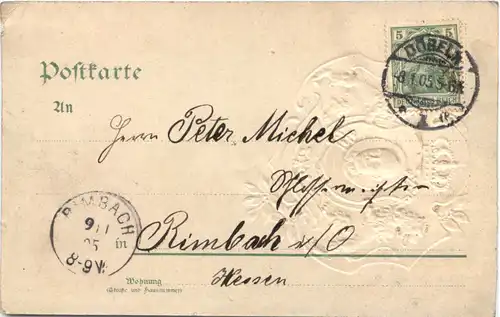 5 5
DÖBELN
8 1 05 5-6N
* 1 (b)
Postkarte
An
Herrn Peter Michel
Schlossermeister
RIMBACH
9/1
05
8-9V.
in Rimbach i/O
Hessen
Wohnung
(Straße und Hausnummer)